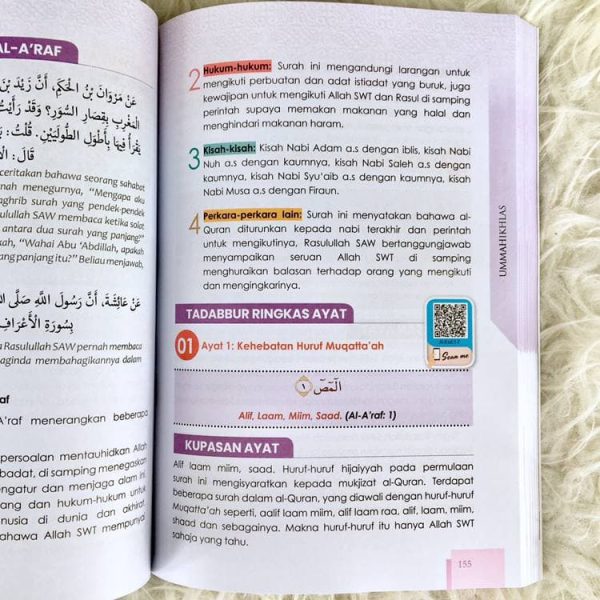 AL-A'RAF
عَنْ مَرْوَانَ بْنِ الْحَكَمِ، أَنَّ زَيْدَ بْنَ
الْمَغْرِبِ بِقِصَارِ السُّوَرِ؟ وَقَدْ رَأَيْتُ
يَقْرَأُ فِيهَا بِأَطْوَلِ الطُّولَيَيْنِ. قُلْتُ:
قَالَ:
ceritakan bahawa seorang sahabat
nah menegurnya, "Mengapa aku
ghrib surah yang pendek-pendek
sulullah SAW membaca ketika solat
antara dua surah yang panjang"
kah, "Wahai Abu 'Abdillah, apakah
g panjang itu?" Beliau menjawab,
عَنْ عَائِشَةَ، أَنَّ رَسُولَ اللَّهِ صَلَّى
بِسُورَةِ الْأَعْرَافِ
Rasulullah SAW pernah membaca
aginda membahagikannya dalam
raf
A'raf menerangkan beberapa
persoalan mentauhidkan Allah
badat, di samping menegaskan
engatur dan menjaga alam ini.
dan hukum-hukum untuk
nusia di dunia dan akhirat.
ahawa Allah SWT mempunyai
2 Hukum-hukum: Surah ini mengandungi larangan untuk
mengikuti perbuatan dan adat istiadat yang buruk, juga
kewajipan untuk mengikuti Allah SWT dan Rasul di samping
perintah supaya memakan makanan yang halal dan
menghindari makanan haram.
3 Kisah-kisah: Kisah Nabi Adam a.s dengan iblis, kisah Nabi
Nuh a.s dengan kaumnya, kisah Nabi Saleh a.s dengan
kaumnya, kisah Nabi Syu'aib a.s dengan kaumnya, kisah
Nabi Musa a.s dengan Firaun.
4 Perkara-perkara lain: Surah ini menyatakan bahawa al-
Quran diturunkan kepada nabi terakhir dan perintah
untuk mengikutinya, Rasulullah SAW bertanggungjawab
menyampaikan seruan Allah SWT di samping
menghuraikan balasan terhadap orang yang mengikuti
dan mengingkarinya.
UMMAHIKHLAS
TADABBUR RINGKAS AYAT
01 Ayat 1: Kehebatan Huruf Muqatta'ah
Scan me
الٓمٓصٓ ١
Alif, Laam, Miim, Saad. (Al-A'raf: 1)
KUPASAN AYAT
Alif laam miim, saad. Huruf-huruf hijaiyyah pada permulaan
surah ini mengisyaratkan kepada mukjizat al-Quran. Terdapat
beberapa surah dalam al-Quran, yang diawali dengan huruf-huruf
Muqatta'ah seperti, aalif laam miim, alif laam raa, alif, laam, miim,
shaad dan sebagainya. Makna huruf-huruf itu hanya Allah SWT
sahaja yang tahu.
155